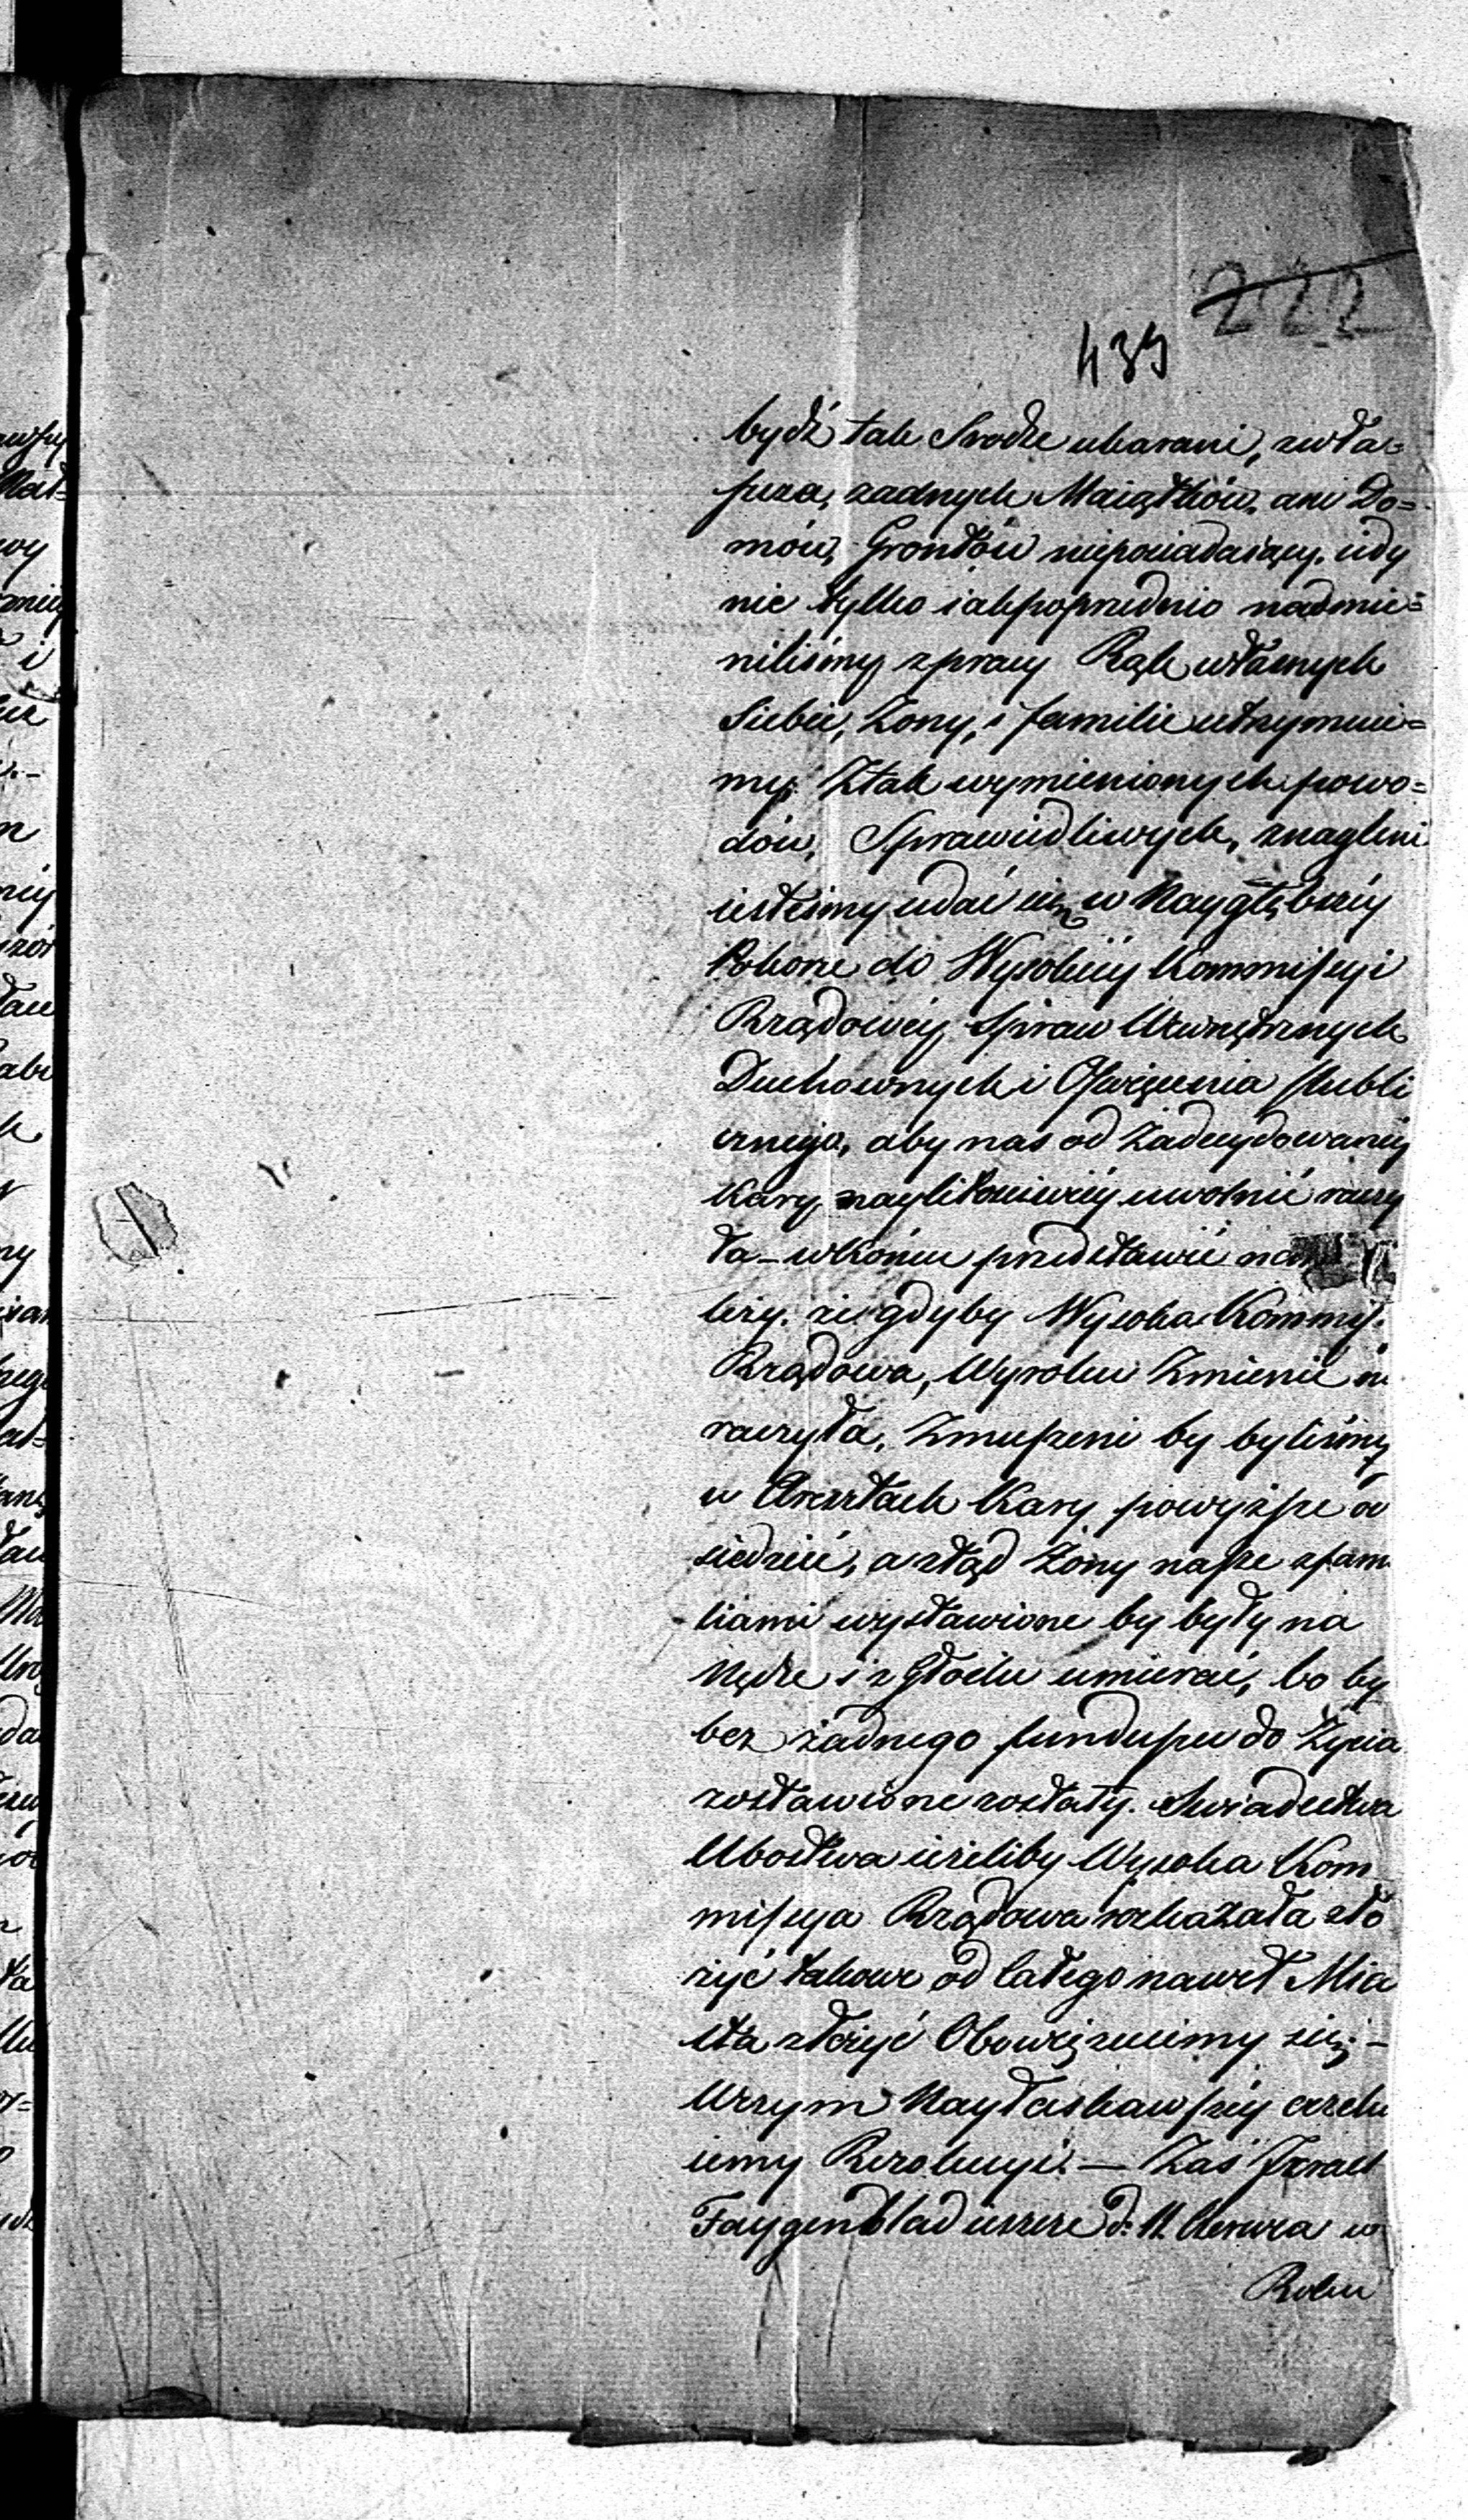 222
439
bydź tak Srodze ukarani, zwła=
szcza, zadnych Maiątków, ani Do=
mów, Grontów nieposiadaiący. iedy
nie tylko iak poprzednio nadmie=
niliśmy z pracy Rąk własnych
Siebie, Zony, i familie utrzymuie=
my. Ztak wymienionych powo=
dów, Sprawiedliwych, znagleni
iesteśmy udać się w Naygłębszéy
Pokorze do Wysokiéy Kommissyi
Rządowéy Spraw Wewnętrznych
Duchownych i Oświęcenia Publi
cznego, aby nas od Zadecydowanéy
Kary naylitościwiéy uwolnić raczy
ła – wkońcu przedstawić nam
leży. że gdyby Wysoka Kommis.
Rządowa, Wyroku Zmienić ni
raczyła, Zmuszeni by byliśmy
w Aresztach Kary powyższe o
siedzieć, a ztąd Zony nasze z fam
liami wystawione by były na
Nędze i z Głodu umierać, bo by
bez żadnego funduszu do Życia
zostawione zostały. Swiadectwa
Ubostwa ieżeliby Wysoka Kom
missya Rządowa rozkazała zło
żyć takowe od całego nawet Mia
sta złożyć Obowięzuiemy się; –
W czym Nayłaskawszéy oczeku
iemy Rezolucyi. — Zaś Izrael
Faygenblad ieszcze d: 11 Czerwca w
Roku